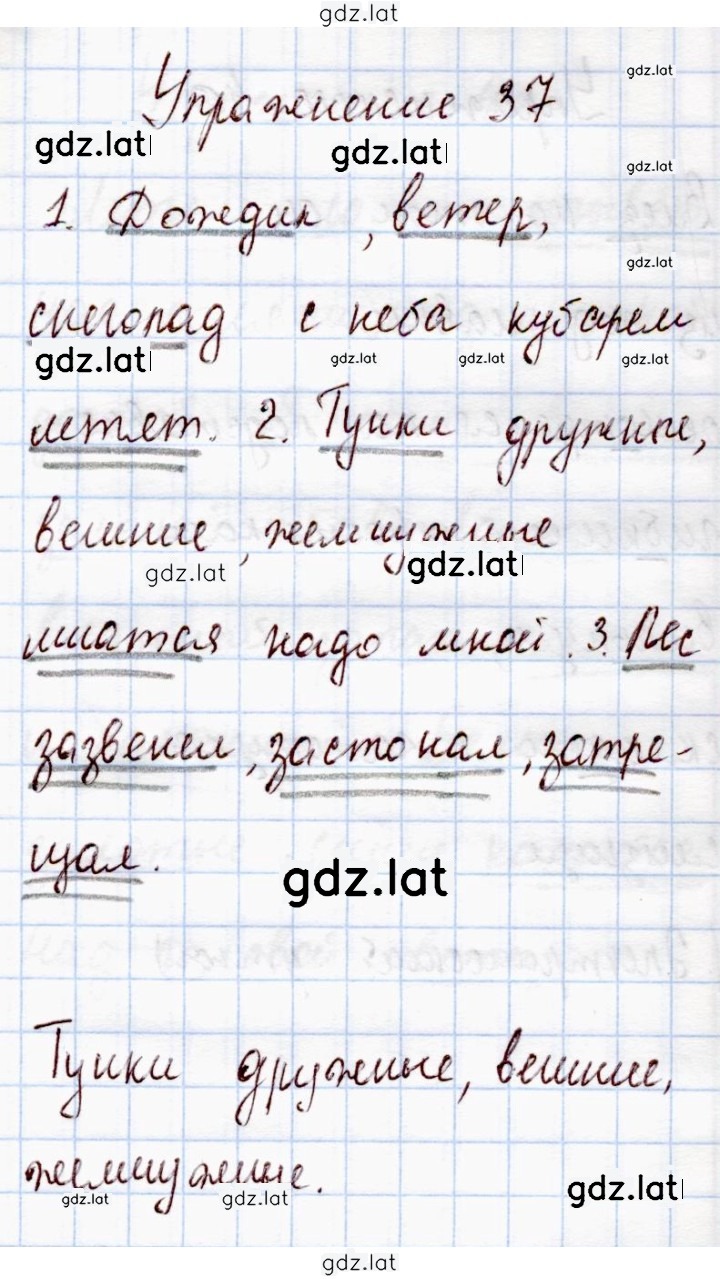 gdz.lat
Упражнение 37
gdz.lat
gdz.lat gdz.lat
gdz.lat
1. Дождик, ветер,
gdz.lat
снегопад с неба кубарем
gdz.lat gdz.lat gdz.lat gdz.lat
летят. 2. Тучки дружные,
вешние, жемчужные
gdz.lat gdz.lat
мчатся надо мной. 3. Лес
зазвенел, застонал, затре-
щал.
gdz.lat
Тучки дружные, вешние,
жемчужные.
gdz.lat gdz.lat gdz.lat
gdz.lat